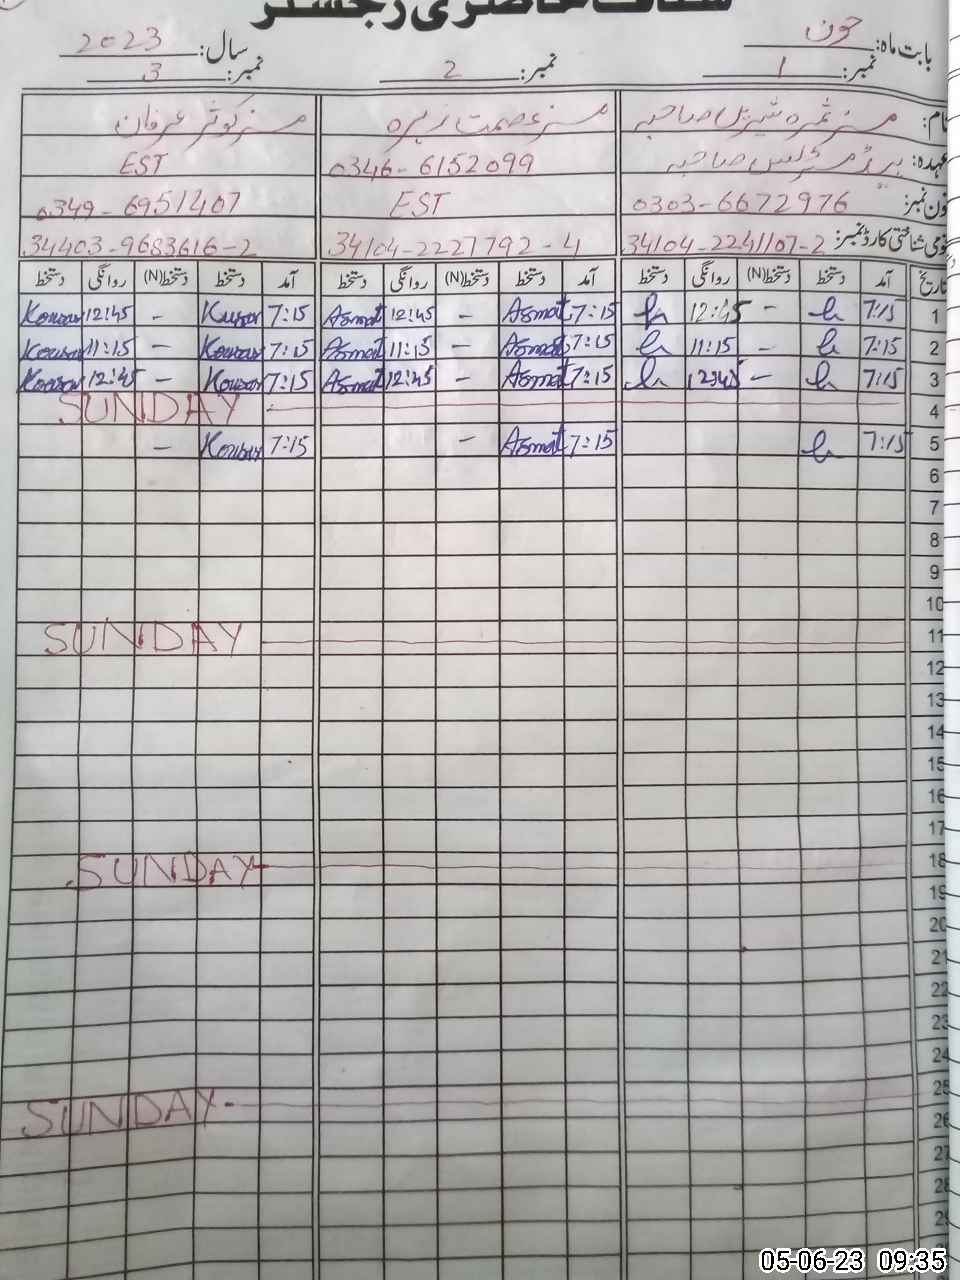 سٹاف حاضری رجسٹر
بابت ماہ: جون سال: 2023
نمبر: 1 نمبر: 2 نمبر: 3
نام: مسز صاحبہ مسز عصمت زہرہ مسز کوثر عرفان
عہدہ: ہیڈ مسٹریس صاحبہ 0346-6152099 EST
فون نمبر: 0303-6672976 EST 0349-6951407
قومی شناختی کارڈ نمبر: 34104-2241107-2 34104-2227792-4 34403-9683616-2
تاریخ آمد دستخط دستخط(N) روانگی دستخط آمد دستخط دستخط(N) روانگی دستخط آمد دستخط دستخط(N) روانگی دستخط
1 7:15 - 12:45 7:15 Asmat - 12:45 Asmat 7:15 Kousar - 12:45 Kousar
2 7:15 - 11:15 7:15 Asmat - 11:15 Asmat 7:15 Kousar - 11:15 Kousar
3 7:15 - 12:45 7:15 Asmat - 12:45 Asmat 7:15 Kousar - 12:45 Kousar
4 SUNDAY
5 7:15 7:15 Asmat - 7:15 Kousar -
6
7
8
9
10
11 SUNDAY
12
13
14
15
16
17
18 SUNDAY
19
20
21
22
23
24
25 SUNDAY
26
27
28
29
05-06-23 09:35